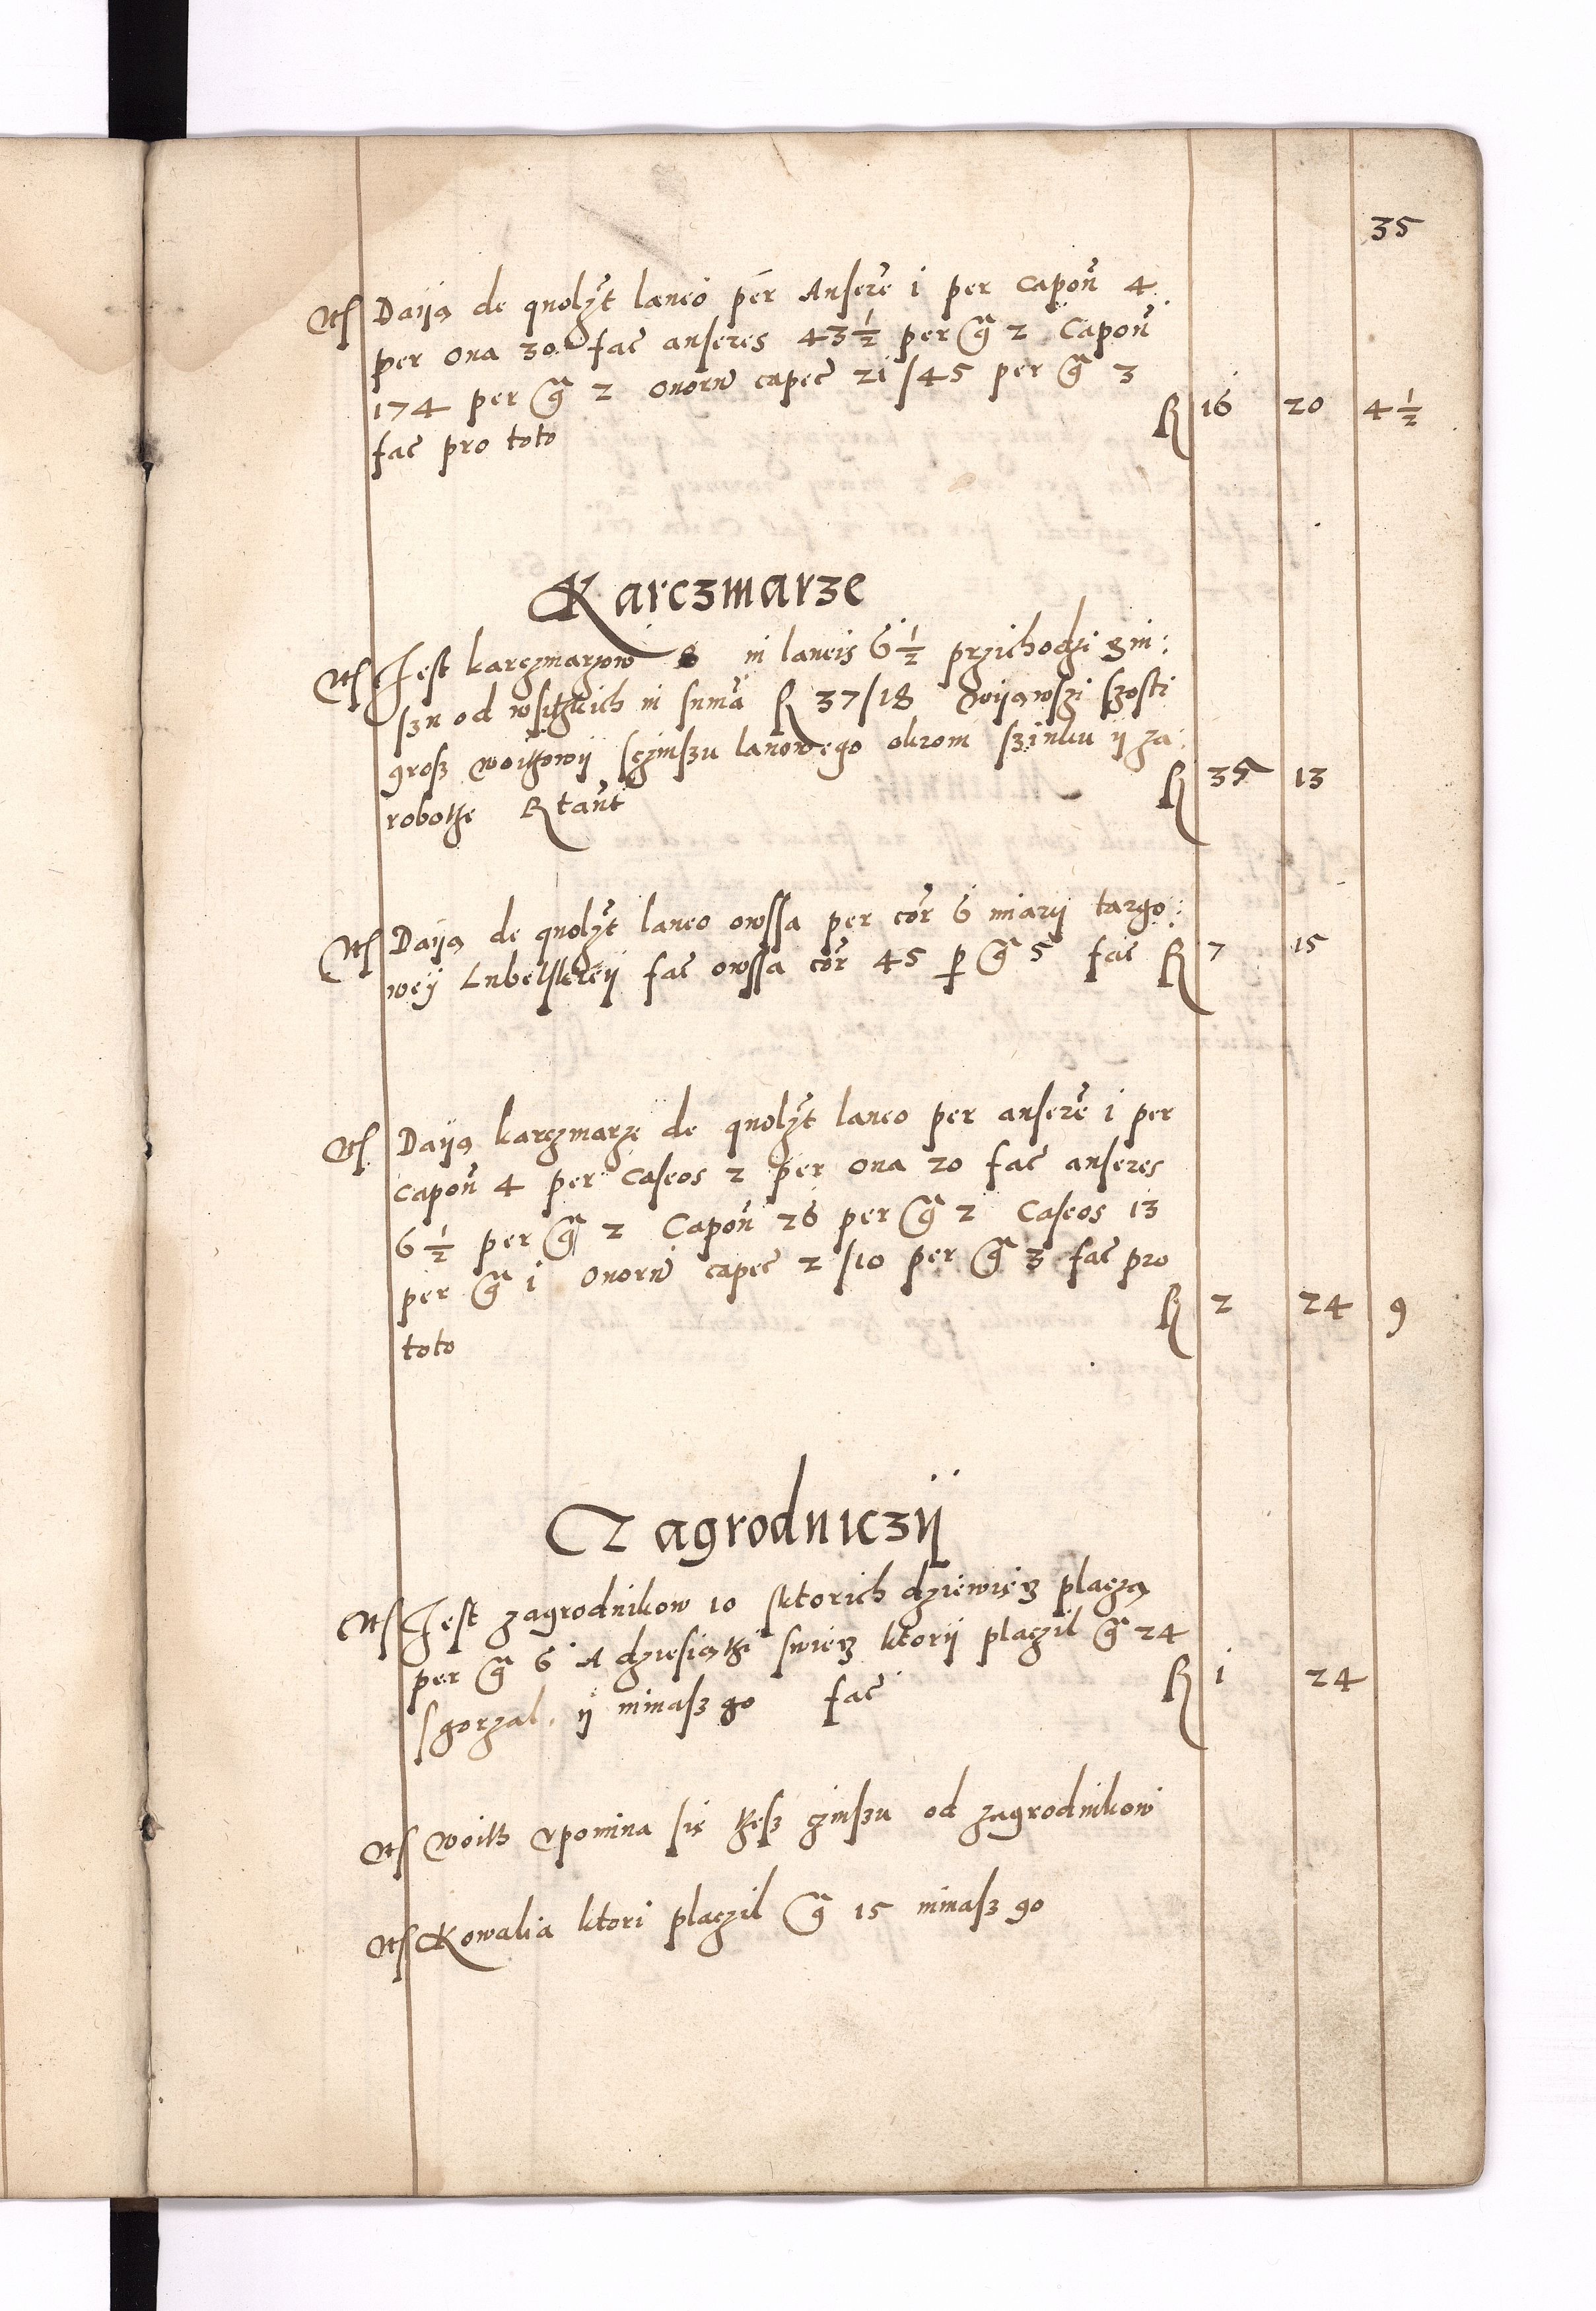 35
Itẽ Daiją de quolżt laneo per Anserẽ i per Capoñ 4
per oua 30 fac̃ anseres 43½ per gr̃ 2 Capoñ
174 per gr̃ 2 ouorũ capec̃ 21/45 per gr̃ 3
fac̃ pro toto R 16 20 4½
Karczmarze
Itẽ Jest karczmarzow 8 in laneis 6½ przichodzi zin:
szu od wsitzkich in sum̃a R 37/18 Wijąwszi szosti
grosz woitowij sczinszu lanowego okrom szinku ij za:
robotze Rtant R 35 13
Itẽ Daiją de quolżt laneo owssa per cor̃ 6 miarij targo:
weij Lubelskieij fac̃ owssa cor̃ 45 p gr̃ 5 fac̃ R 7 15
Itẽ Daiją karczmarze de quolżt laneo per anserẽ i per
Capoñ 4 per Caseos 2 per oua 20 fac̃ anseres
6½ per gr̃ 2 Capoñ 26 per gr̃ 2 Caseos 13
per gr̃ i ouorũ capec̃ 2/10 per gr̃ 3 fac̃ pro
toto R 2 24 9
Zagrodniczij
Itẽ Jest zagrodnikow 10 sktorich dziewięz płaczą
per gr̃ 6 A dziesiątzi swiez ktorij płaczil gr̃ 24
sgorzal. ij nimasz go fac̃ R i 24
Itẽ Woitz vpomina się tzesz czinszu od zagrodnikow
Itẽ Kowalia ktori płaczil gr̃ 15 nimasz go